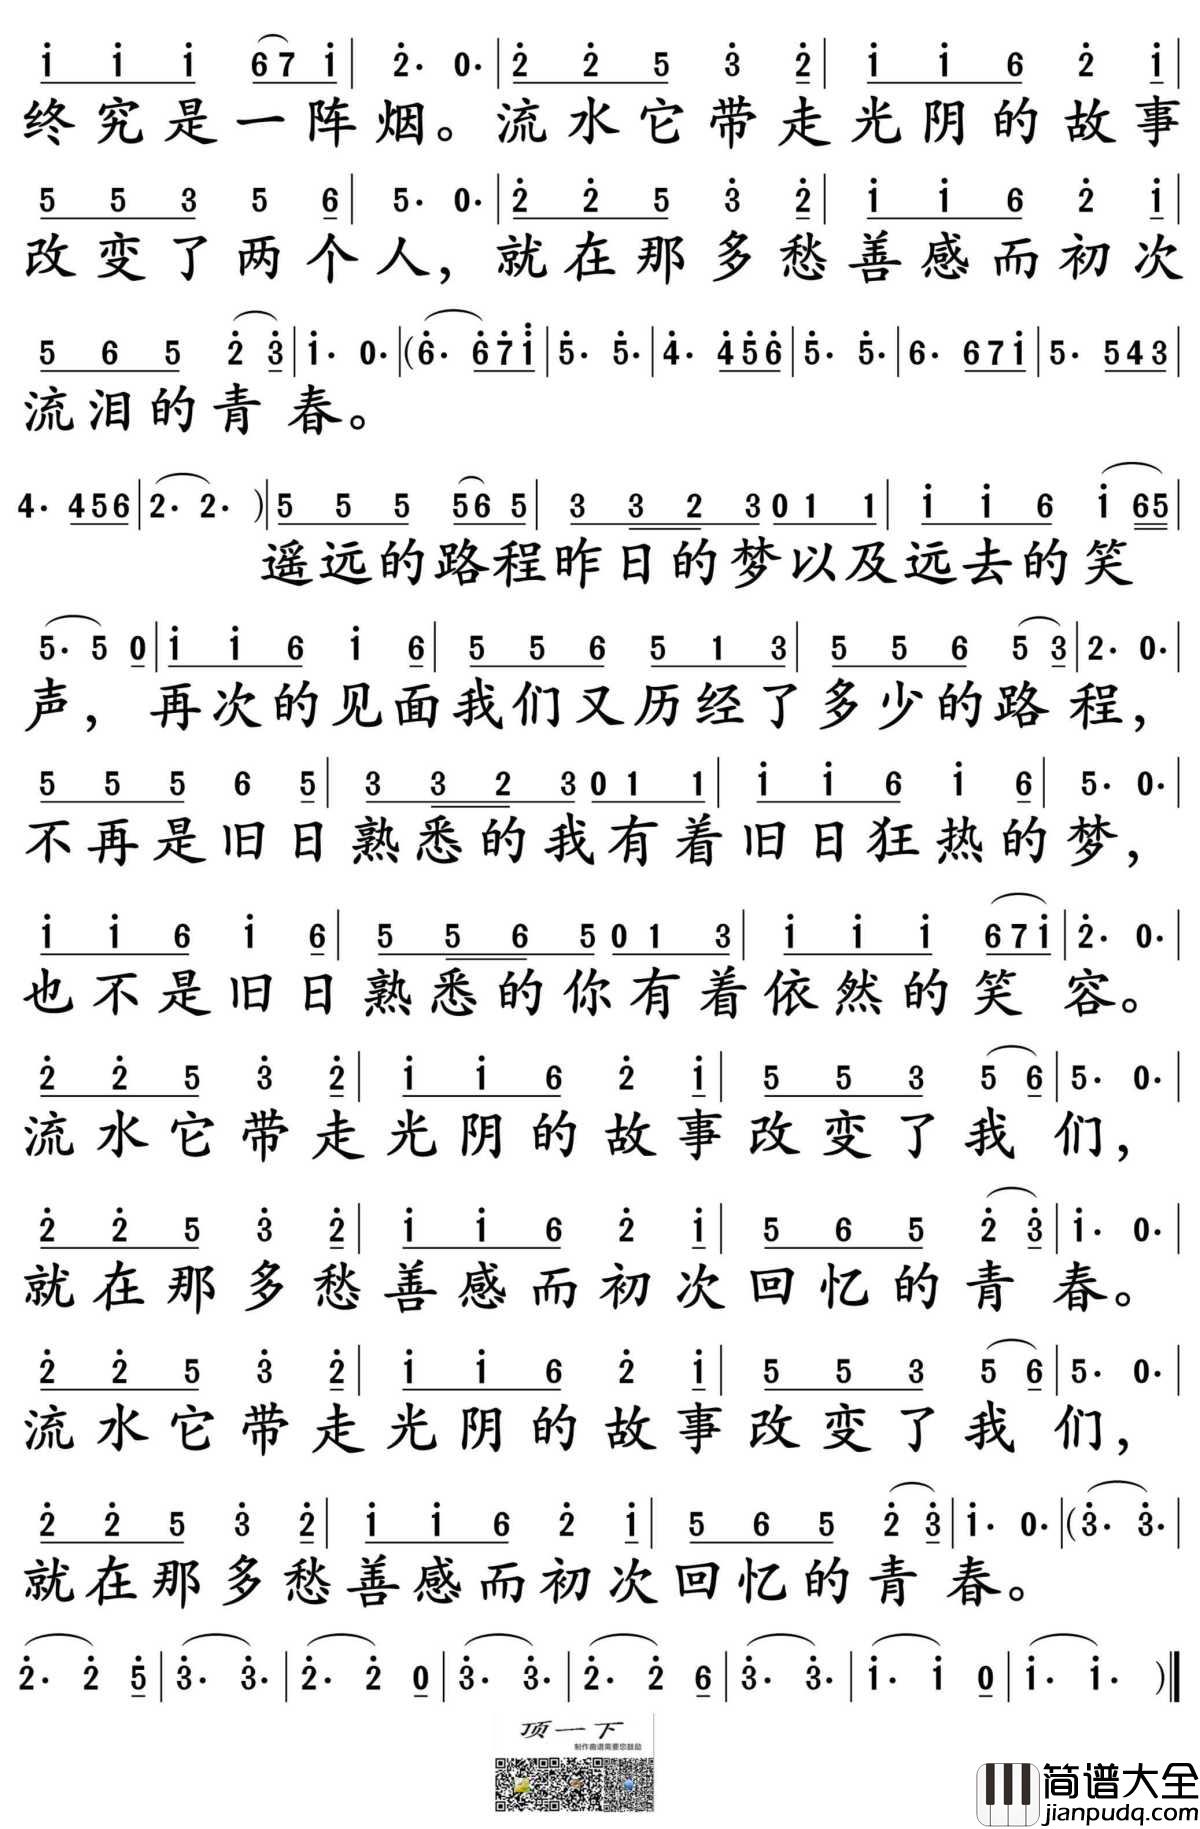 i i i 6 7 i | 2· 0· | 2 2 5 3 2 | i i 6 2 i |
终究是一阵烟。流水它带走光阴的故事
5 5 3 5 6 | 5· 0· | 2 2 5 3 2 | i i 6 2 i |
改变了两个人，就在那多愁善感而初次
5 6 5 2 3 | i· 0· | (6· 6 7 i | 5· 5· | 4· 4 5 6 | 5· 5· | 6· 6 7 i | 5· 5 4 3 |
流泪的青春。
4· 4 5 6 | 2· 2· ) | 5 5 5 5 6 5 | 3 3 2 3 0 1 1 | i i 6 i 6 5 |
遥远的路程昨日的梦以及远去的笑
5· 5 0 | i i 6 i 6 | 5 5 6 5 1 3 | 5 5 6 5 3 | 2· 0· |
声，再次的见面我们又历经了多少的路程，
5 5 5 6 5 | 3 3 2 3 0 1 1 | i i 6 i 6 | 5· 0· |
不再是旧日熟悉的我有着旧日狂热的梦，
i i 6 i 6 | 5 5 6 5 0 1 3 | i i i 6 7 i | 2· 0· |
也不是旧日熟悉的你有着依然的笑容。
2 2 5 3 2 | i i 6 2 i | 5 5 3 5 6 | 5· 0· |
流水它带走光阴的故事改变了我们，
2 2 5 3 2 | i i 6 2 i | 5 6 5 2 3 | i· 0· |
就在那多愁善感而初次回忆的青春。
2 2 5 3 2 | i i 6 2 i | 5 5 3 5 6 | 5· 0· |
流水它带走光阴的故事改变了我们，
2 2 5 3 2 | i i 6 2 i | 5 6 5 2 3 | i· 0· | (3· 3· |
就在那多愁善感而初次回忆的青春。
2· 2 5 | 3· 3· | 2· 2 0 | 3· 3· | 2· 2 6 | 3· 3· | i· i 0 | i· i· ) ||
顶一下
制作曲谱需要您鼓励
简谱大全
jianpudq.com